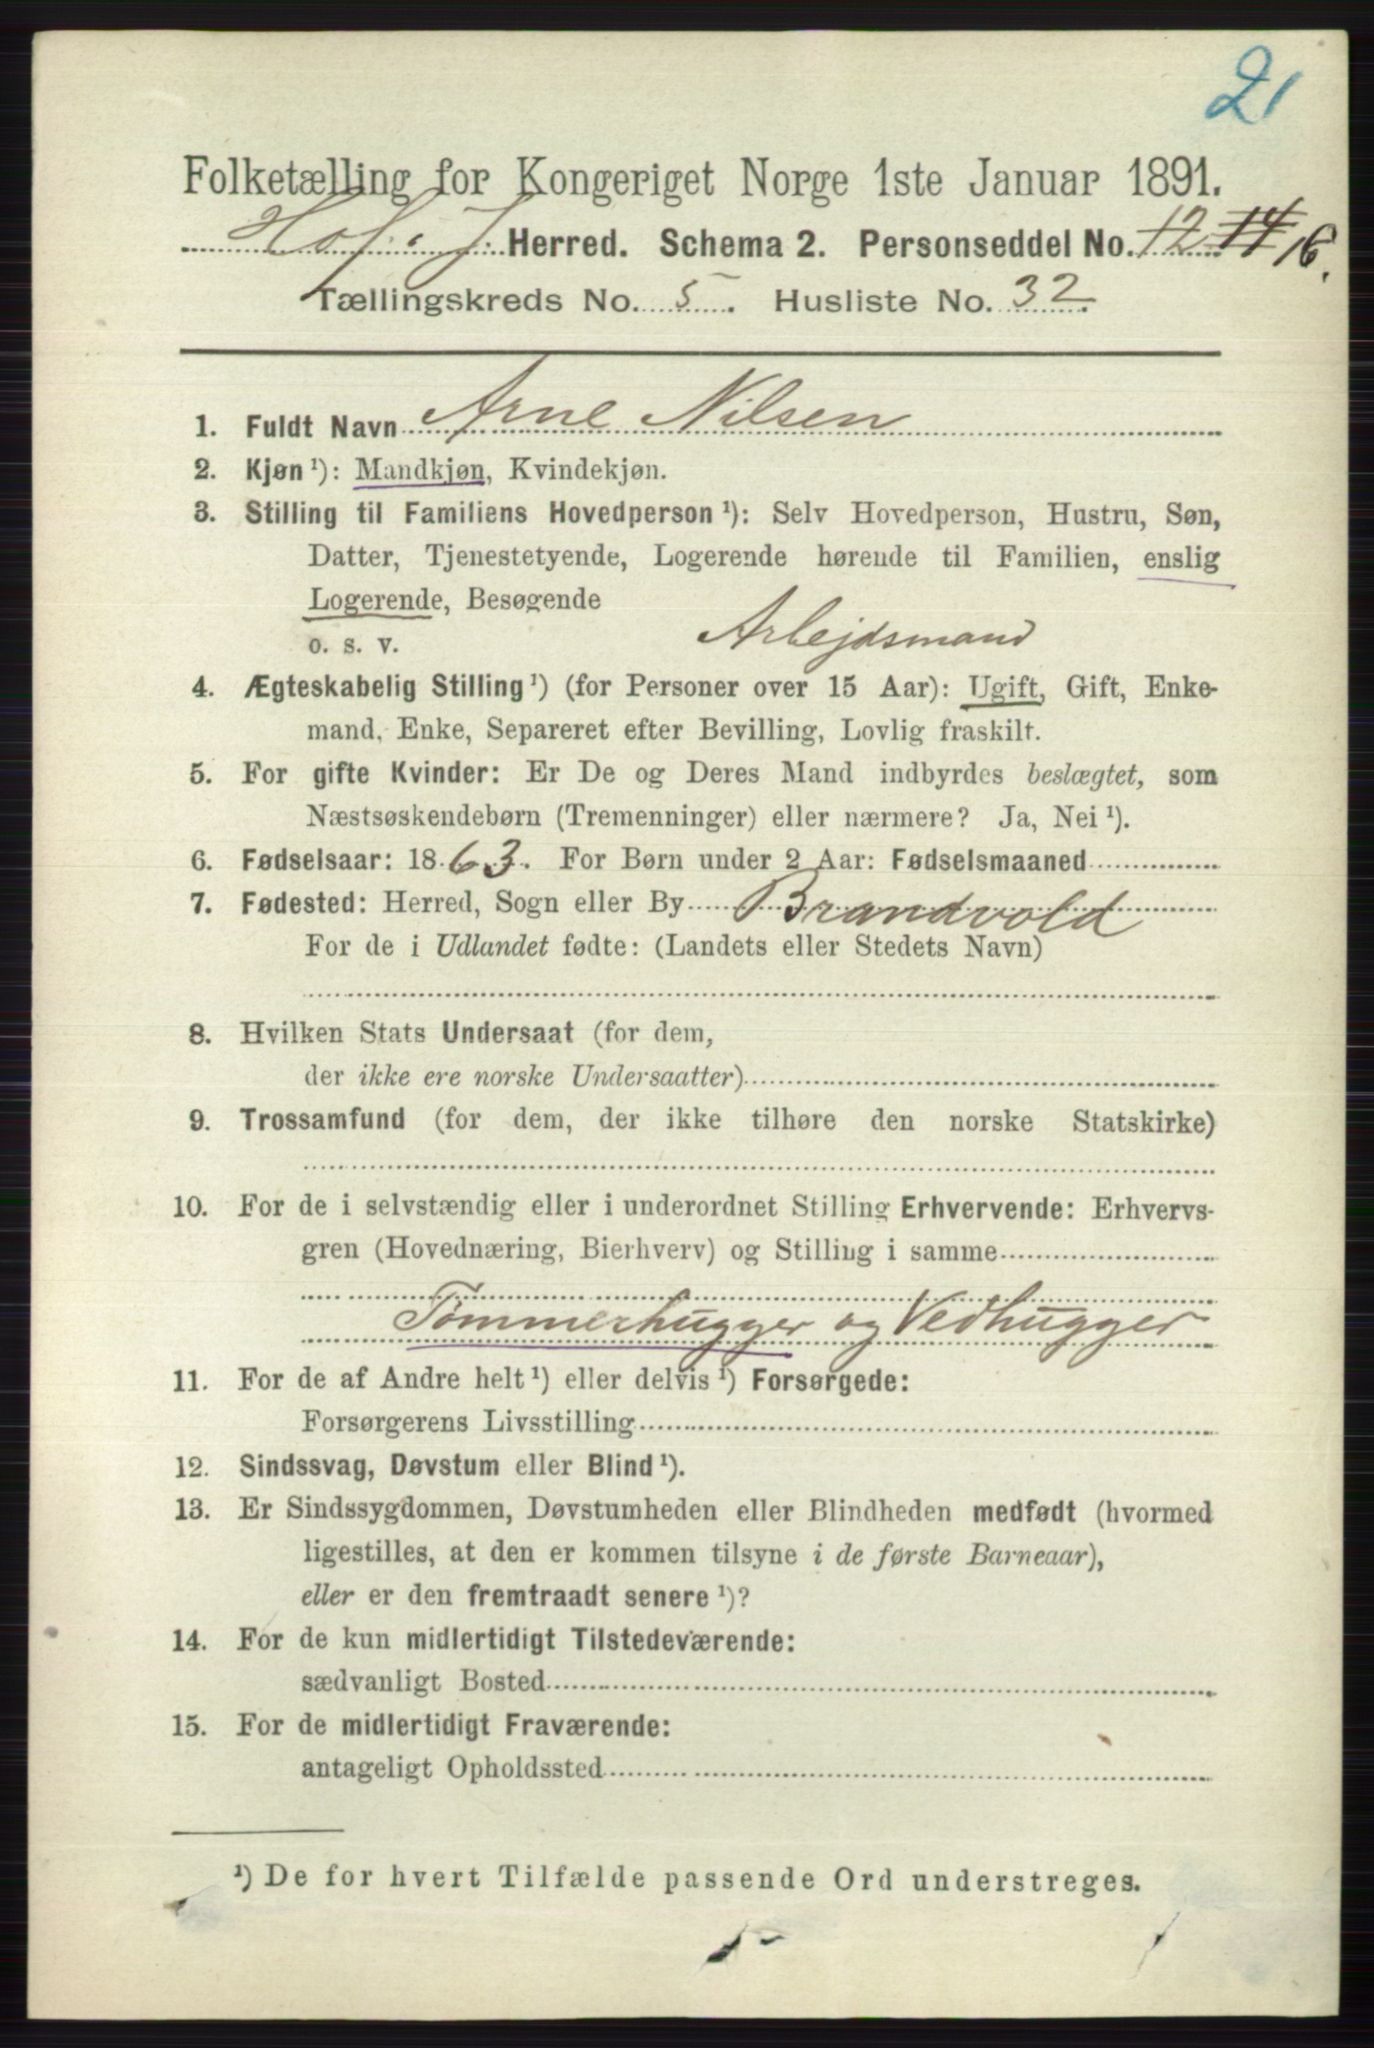 21
Folketælling for Kongeriget Norge 1ste Januar 1891.
Hof i S. Herred. Schema 2. Personseddel No. 12 14 16.
Tællingskreds No. 5. Husliste No. 32
1. Fuldt Navn Arne Nilsen
2. Kjøn ¹): Mandkjøn, Kvindekjøn.
3. Stilling til Familiens Hovedperson ¹): Selv Hovedperson, Hustru, Søn,
Datter, Tjenestetyende, Logerende hørende til Familien, enslig
Logerende, Besøgende
o. s. v. Arbejdsmand
4. Ægteskabelig Stilling ¹) (for Personer over 15 Aar): Ugift, Gift, Enke-
mand, Enke, Separeret efter Bevilling, Lovlig fraskilt.
5. For gifte Kvinder: Er De og Deres Mand indbyrdes beslægtet, som
Næstsøskendebørn (Tremenninger) eller nærmere? Ja, Nei ¹).
6. Fødselsaar: 1863. For Børn under 2 Aar: Fødselsmaaned
7. Fødested: Herred, Sogn eller By Brandvold
For de i Udlandet fødte: (Landets eller Stedets Navn)
8. Hvilken Stats Undersaat (for dem,
der ikke ere norske Undersaatter)
9. Trossamfund (for dem, der ikke tilhøre den norske Statskirke)
10. For de i selvstændig eller i underordnet Stilling Erhvervende: Erhvervs-
gren (Hovednæring, Bierhverv) og Stilling i samme
Tømmerhugger og Vedhugger
11. For de af Andre helt ¹) eller delvis ¹) Forsørgede:
Forsørgerens Livsstilling
12. Sindssvag, Døvstum eller Blind ¹).
13. Er Sindssygdommen, Døvstumheden eller Blindheden medfødt (hvormed
ligestilles, at den er kommen tilsyne i de første Barneaar),
eller er den fremtraadt senere ¹)?
14. For de kun midlertidigt Tilstedeværende:
sædvanligt Bosted
15. For de midlertidigt Fraværende:
antageligt Opholdssted
¹) De for hvert Tilfælde passende Ord understreges.